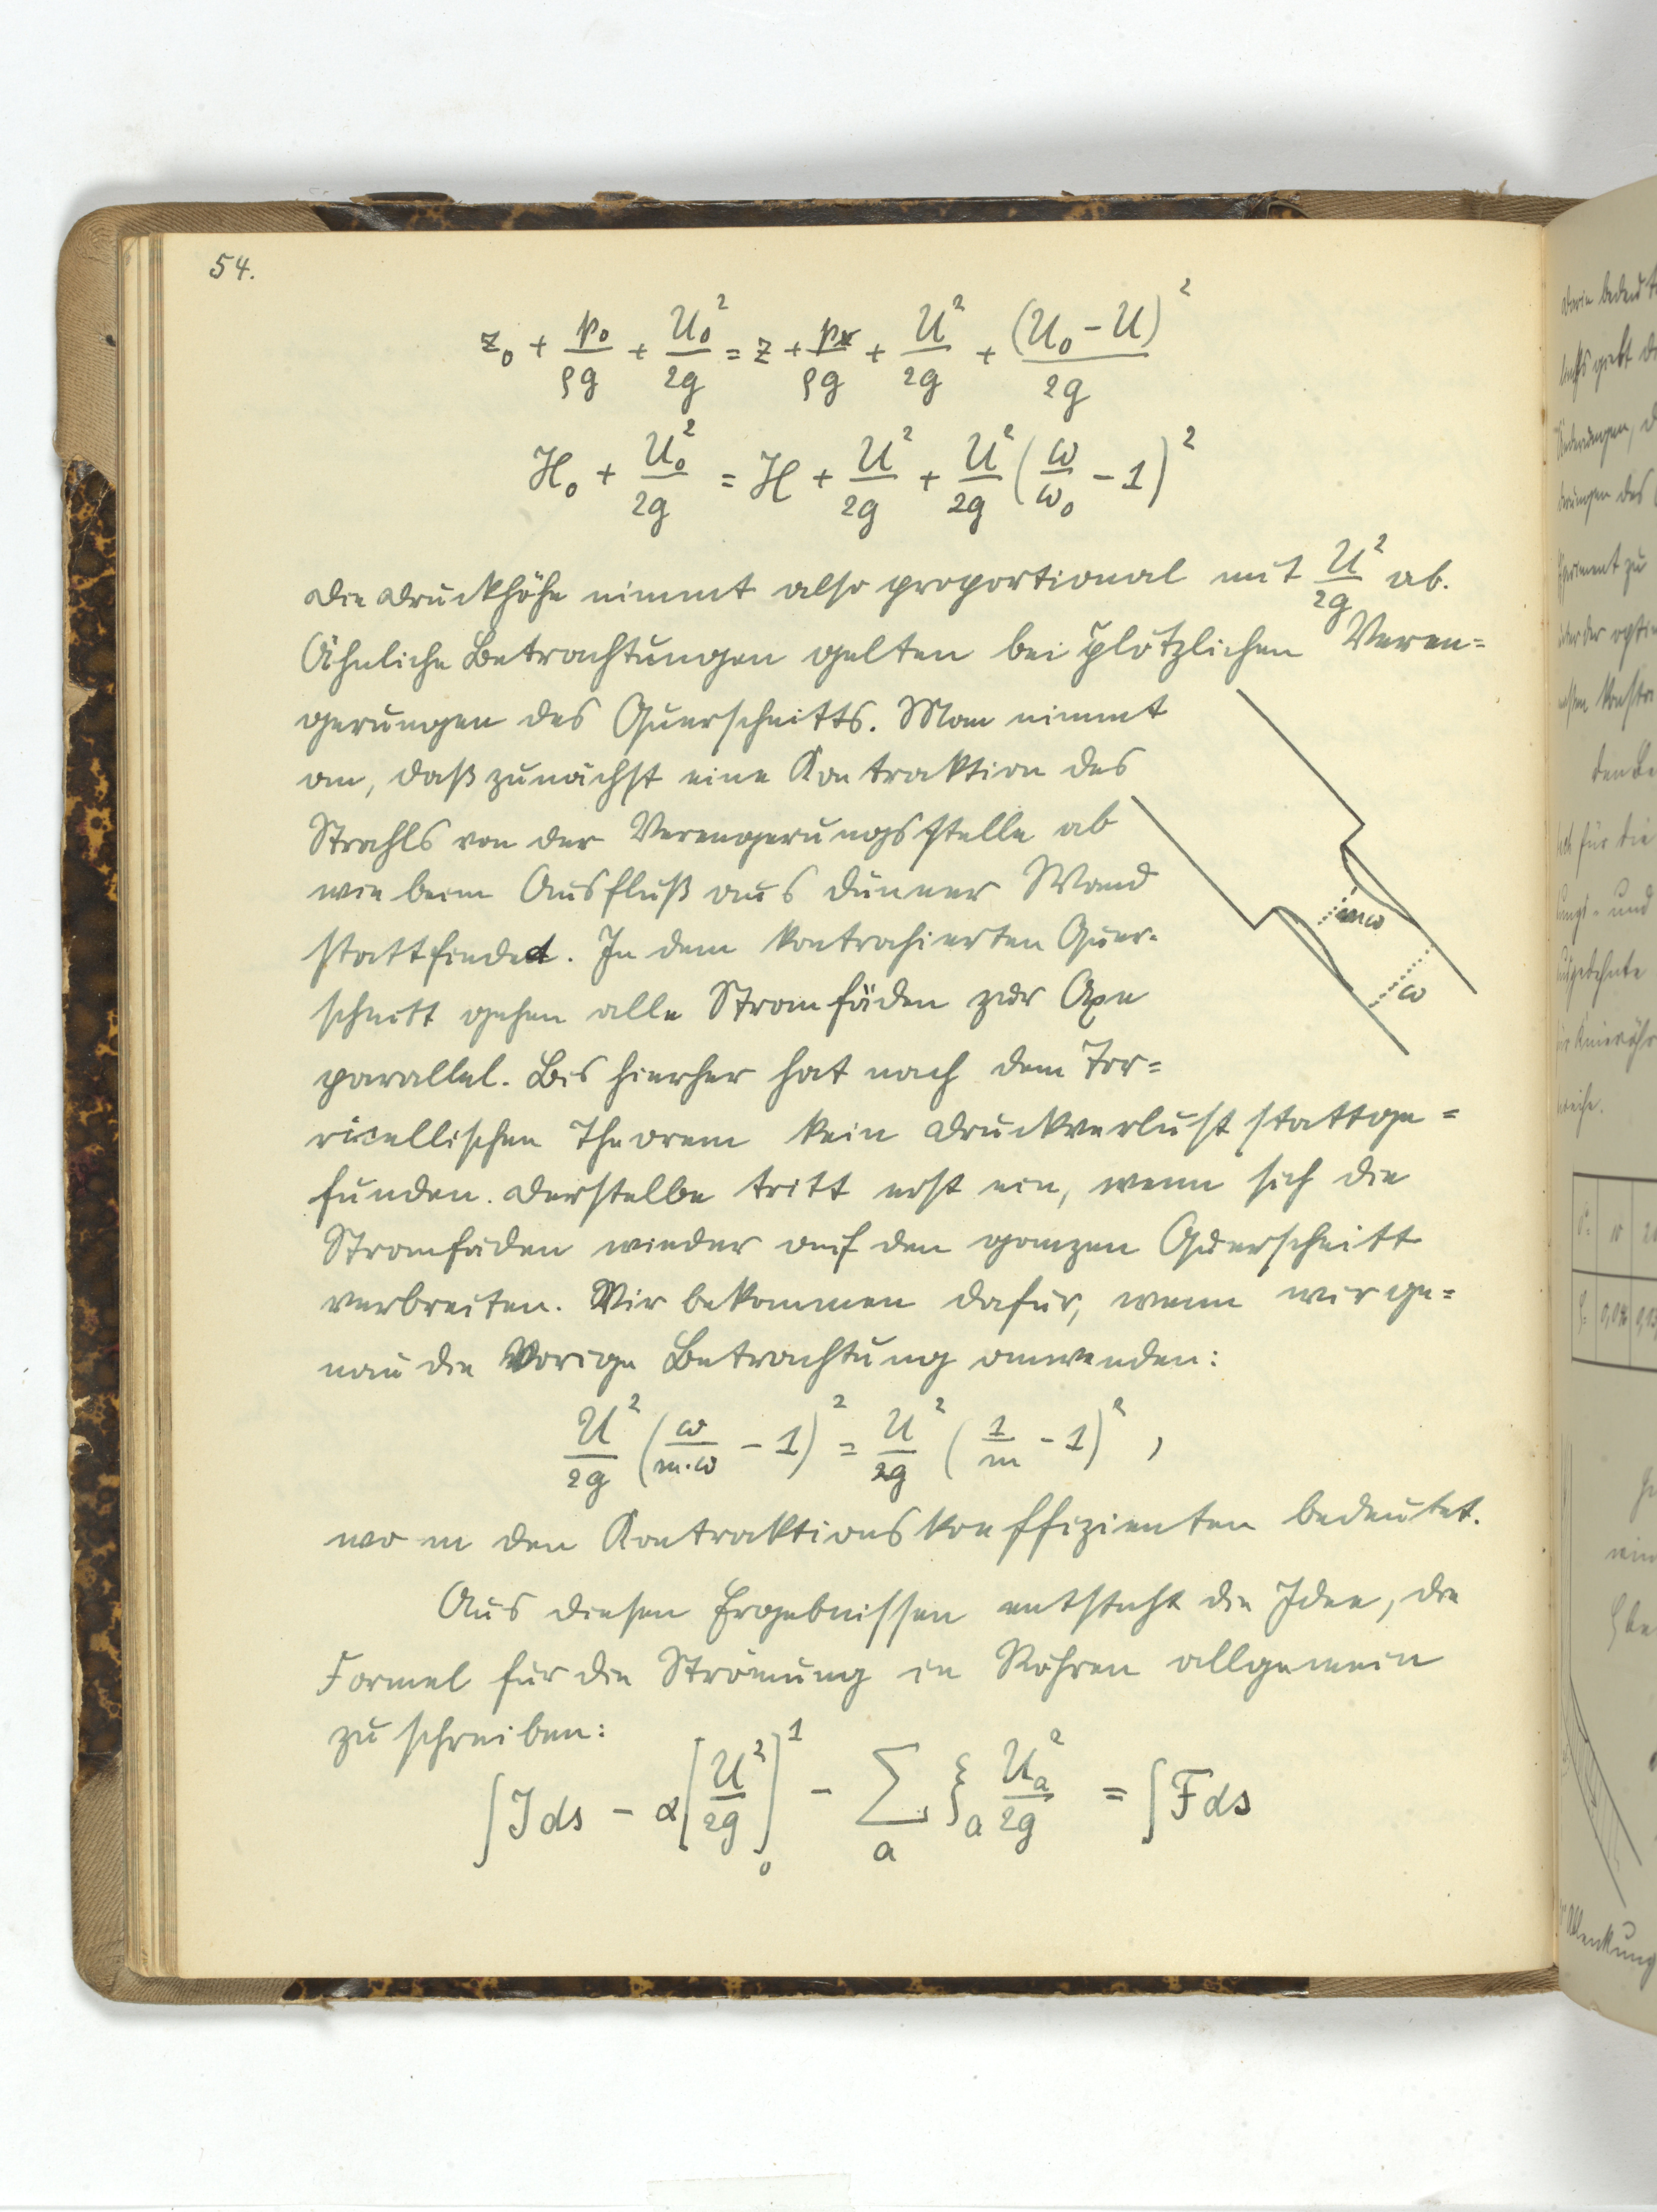 54.
z₀ + p₀/ρg + U₀²/2g = z + p/ρg + U²/2g + (U₀ - U)²/2g
H₀ + U₀²/2g = H + U²/2g + U²/2g (ω/ω₀ - 1)²
Die Druckhöhe nimmt also proportional mit U²/2g ab.
Ähnliche Betrachtungen gelten bei plötzlichen Veren=
gerungen des Querschnitts. Man nimmt
an, daß zunächst eine Kontraktion des
Strahls von der Verengerungsstelle ab
wie beim Ausfluß aus dünner Wand
stattfindet. In dem kontrahierten Quer-
schnitt gehen alle Stromfäden zur Axe
parallel. Bis hierher hat nach dem Tor=
ricellischen Theorem kein Druckverlust stattge=
funden. Derselbe tritt erst ein, wenn sich die
Stromfäden wieder auf den ganzen Querschnitt
verbreiten. Wir bekommen dafür, wenn wir ge=
nau die Vorige Betrachtung anwenden:
U²/2g (ω/m·ω - 1)² = U²/2g (1/m - 1)²,
wo m den Kontraktionskoeffizienten bedeutet.
Aus diesen Ergebnissen entsteht die Idee, die
Formel für die Strömung in Röhren allgemein
zu schreiben:
∫J ds - α[U²/2g]₀¹ - ∑ₐ ξₐ Uₐ²/2g = ∫F ds
mω
ω